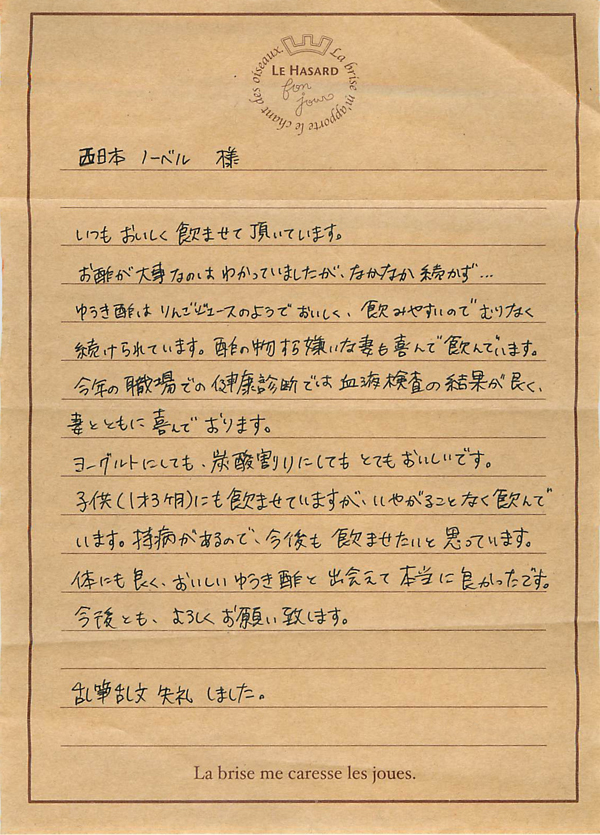 La brise m'apporte le chant des oiseaux.
LE HASARD
bon
jour
西日本 ノーベル 様
いつも おいしく 飲ませて 頂いています。
お酢が 大事なのは わかっていましたが、なかなか 続かず…
ゆうき酢は りんごジュースのようで おいしく、飲みやすいので むりなく
続けられています。酢の物すら嫌いな妻も喜んで飲んでいます。
今年の職場での健康診断では血液検査の結果が良く、
妻とともに喜んで おります。
ヨーグルトにしても、炭酸割りにしても とても おいしいです。
子供(1才3ヶ月)にも飲ませていますが、いやがることなく飲んで
います。持病があるので、今後も 飲ませたいと 思っています。
体にも良く、おいしい ゆうき酢と 出会えて 本当に 良かったです。
今後とも、よろしく お願い致します。
乱筆乱文 失礼 しました。
La brise me caresse les joues.